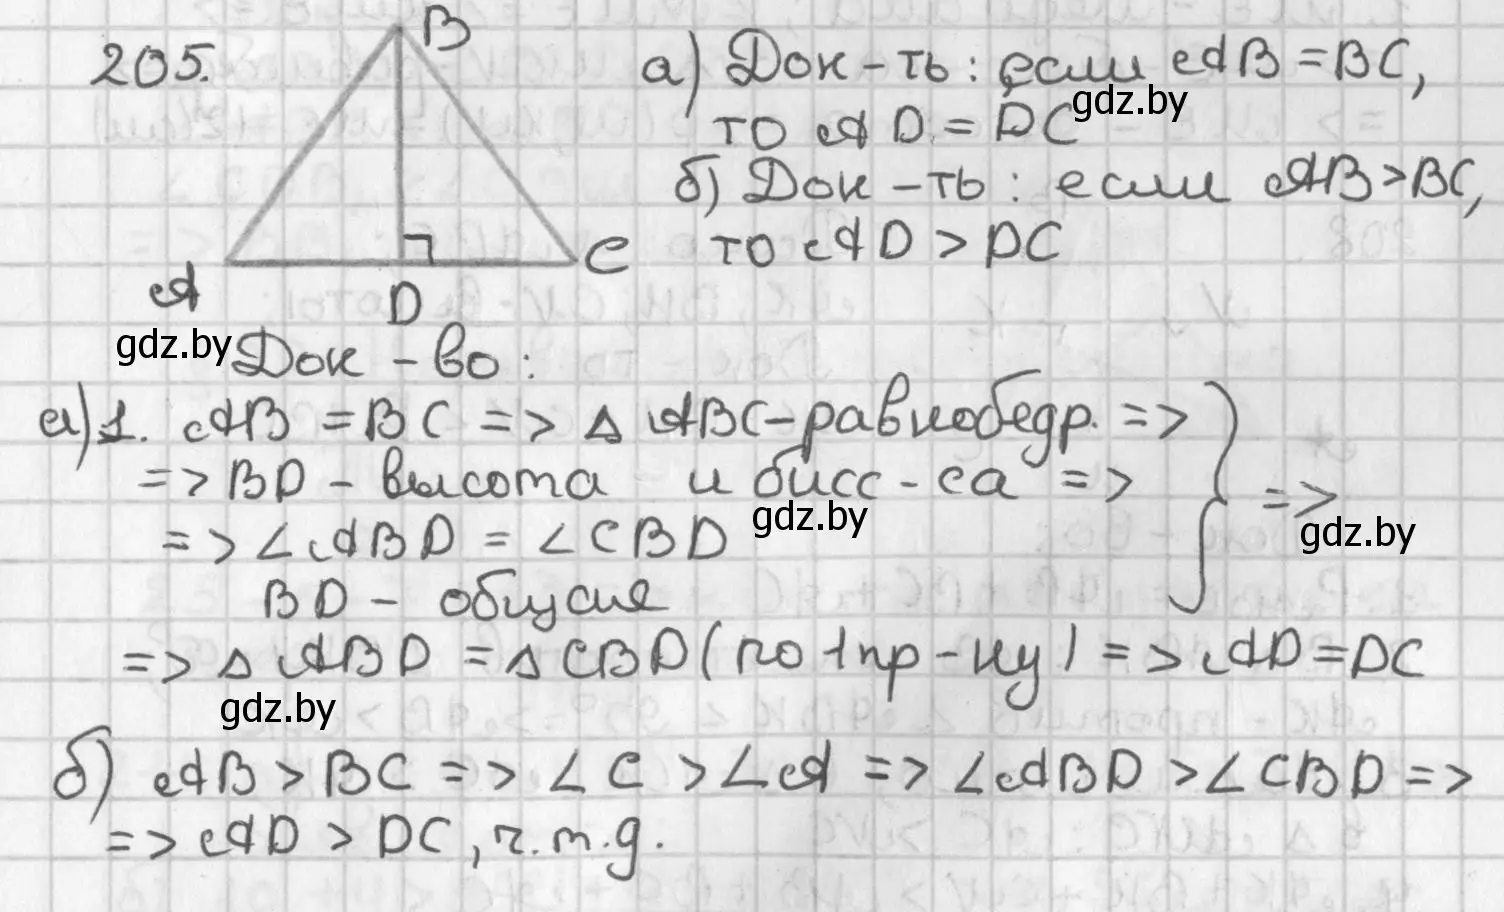 205.
B
A
D
C
а) Док-ть: если AB = BC,
gdz.by
то AD = DC
б) Док-ть: если AB > BC,
то AD > DC
gdz.by
Док-во:
а) 1. AB = BC => △ ABC - равнобедр. =>
=> BD - высота и бисс-са => } =>
gdz.by
gdz.by
=> ∠ABD = ∠CBD
BD - общая
=> △ ABD = △ CBD (по 1 пр-ку) => AD = DC
gdz.by
б) AB > BC => ∠C > ∠A => ∠ABD > ∠CBD =>
=> AD > DC, ч.т.д.